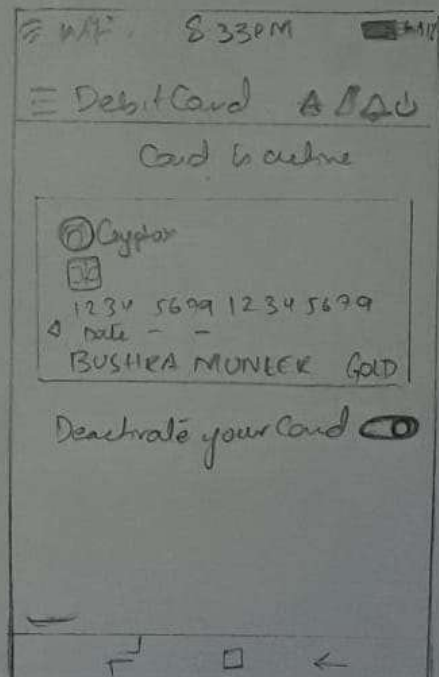 8 33PM
Debit Card
Card is active
Cryptox
1234 5679 1234 5679
Date - -
BUSHRA MUNEER GOLD
Deactivate your Card